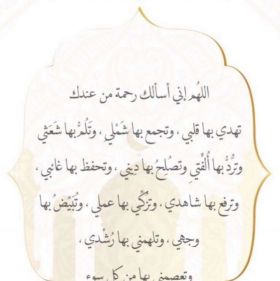 اللهُم إني أسألك رحمة من عندك
تهدي بها قلبي ، وتجمع بها شَمْلي ، وتَلُمُّ بها شَعَثي
وتَرُدُّ بها أُلْفتي وتصُلحُ بها ديني ، وتحفظ بها غائبي ،
وترفع بها شاهدي ، وتزكّي بها عملي ، وتُبَيّضُ بها
وجهي ، وتلهمني بها رُشْدي ،
وتعصمني بها من كل سوء